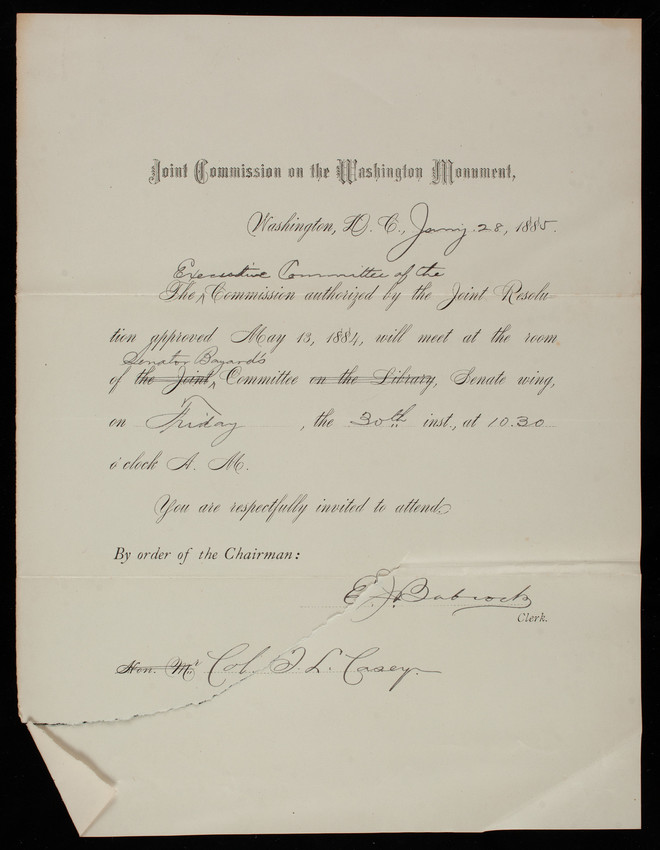 Joint Commission on the Washington Monument,
Washington, D. C., Jan'y. 28, 1885.
Executive Committee of the
The ^ Commission authorized by the Joint Resolu
tion approved May 13, 1884, will meet at the room
Senator Bayard's
of the Joint ^ Committee on the Library, Senate wing,
on Friday, the 30th inst., at 10.30
o'clock A. M.
You are respectfully invited to attend.
By order of the Chairman:
E. J. Babcock
Clerk.
Hon. Mr Col. T. L. Casey.